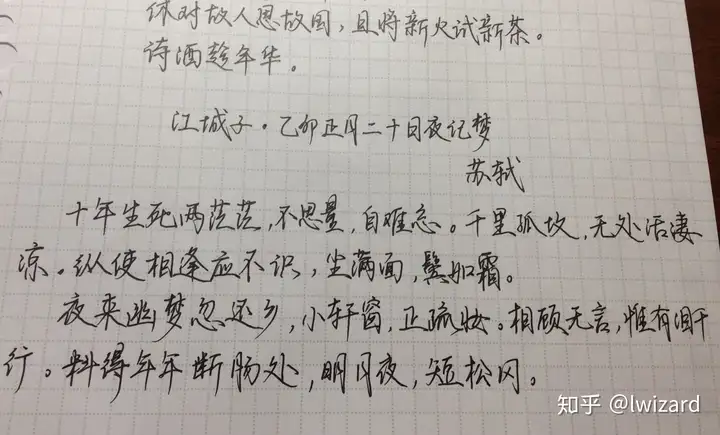 休对故人思故国，且将新火试新茶。
诗酒趁年华。
江城子·乙卯正月二十日夜记梦
苏轼
十年生死两茫茫，不思量，自难忘。千里孤坟，无处话凄
凉。纵使相逢应不识，尘满面，鬓如霜。
夜来幽梦忽还乡，小轩窗，正梳妆。相顾无言，惟有泪千
行。料得年年断肠处，明月夜，短松冈。
知乎 @lwizard